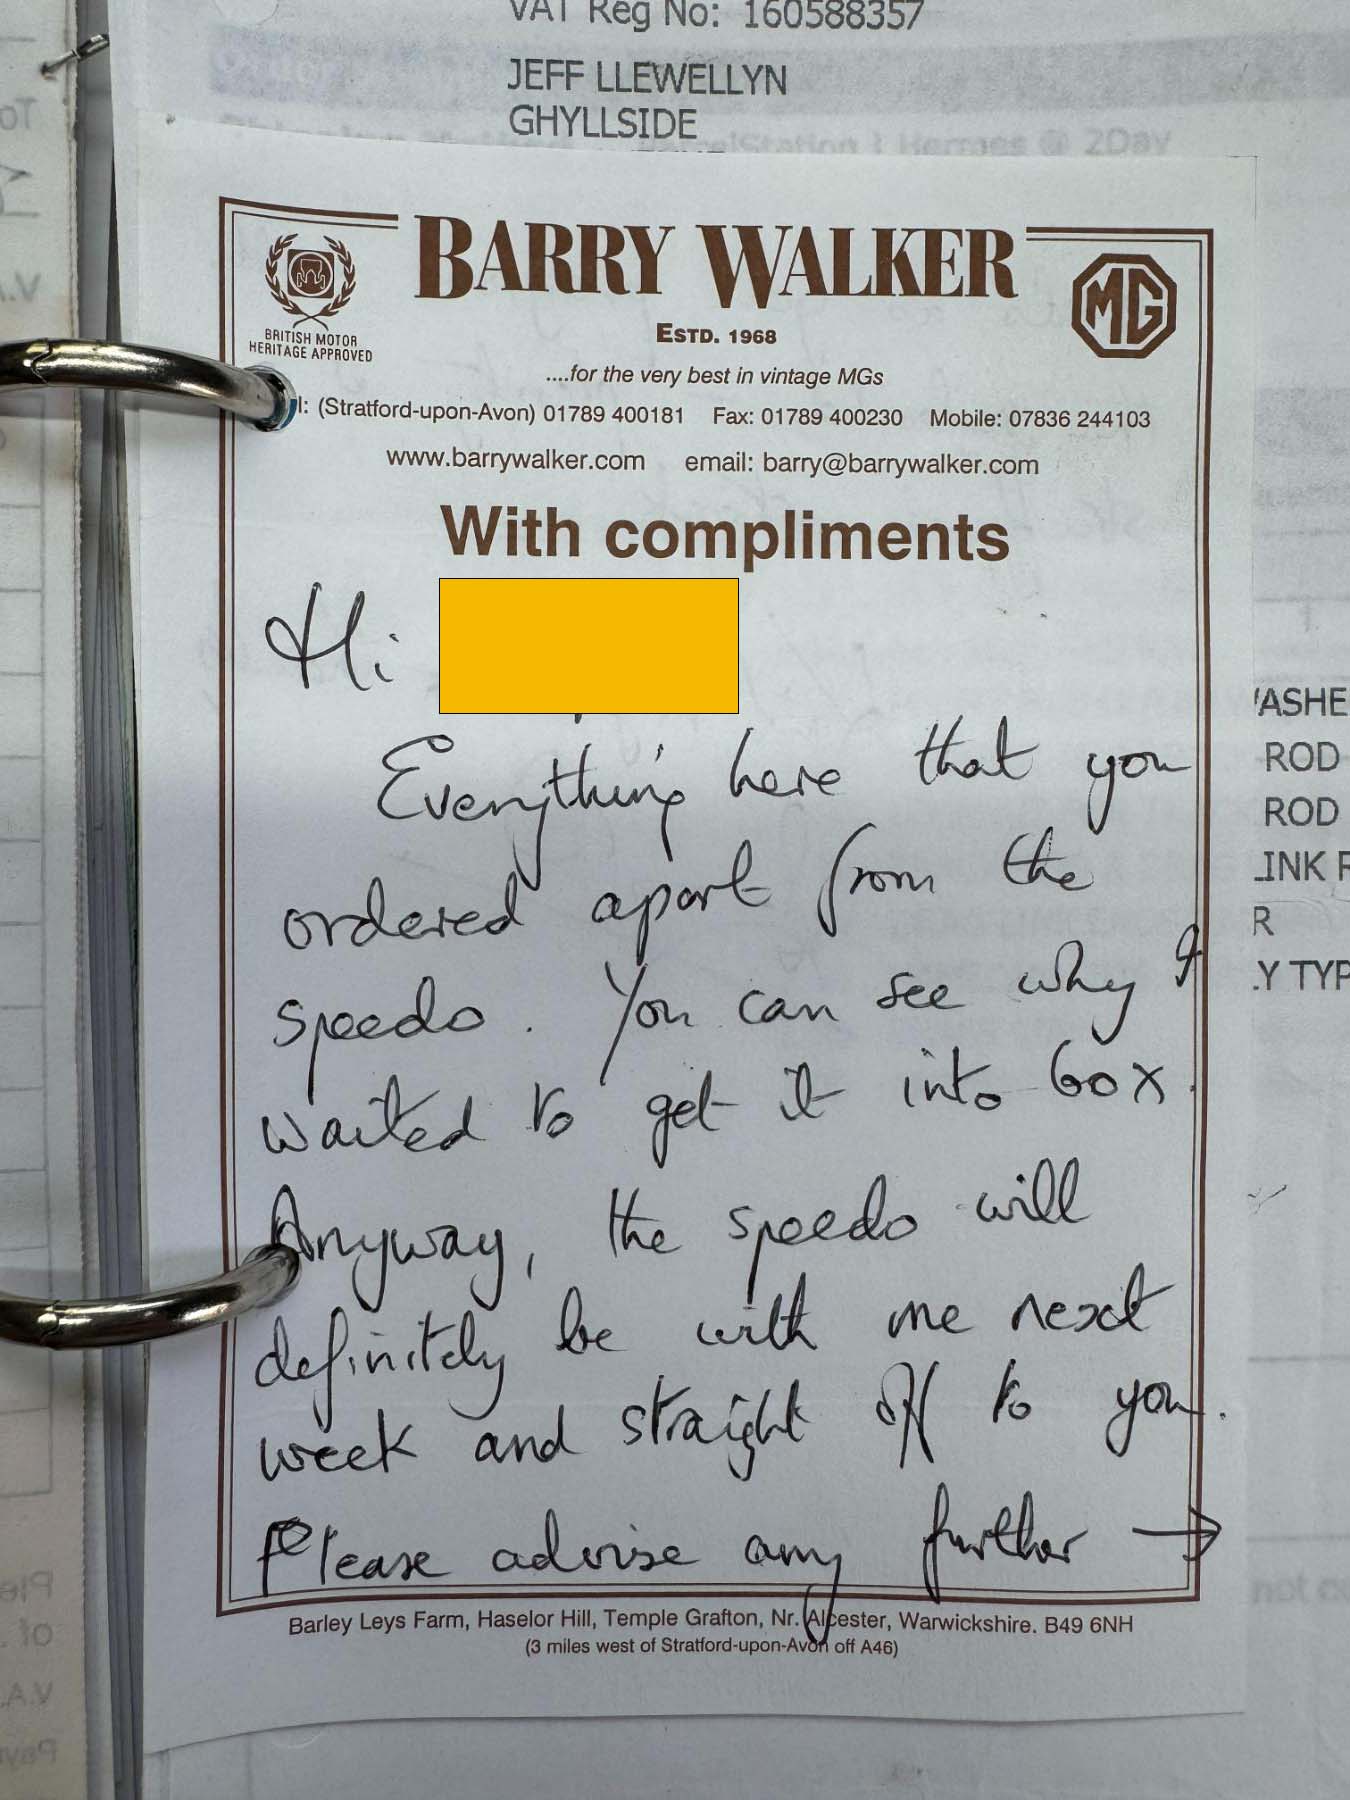 VAT Reg No: 160588357
JEFF LLEWELLYN
GHYLLSIDE
BARRY WALKER
ESTD. 1968
BRITISH MOTOR
HERITAGE APPROVED
MG
....for the very best in vintage MGs
l: (Stratford-upon-Avon) 01789 400181 Fax: 01789 400230 Mobile: 07836 244103
www.barrywalker.com email: barry@barrywalker.com
With compliments
Hi
Everything here that you
ordered apart from the
speedo. You can see why I
waited to get it into box.
Anyway, the speedo will
definitely be with me next
week and straight off to you.
Please advise any further →
Barley Leys Farm, Haselor Hill, Temple Grafton, Nr. Alcester, Warwickshire. B49 6NH
(3 miles west of Stratford-upon-Avon off A46)
ASHE
ROD
ROD
INK R
R
Y TYP